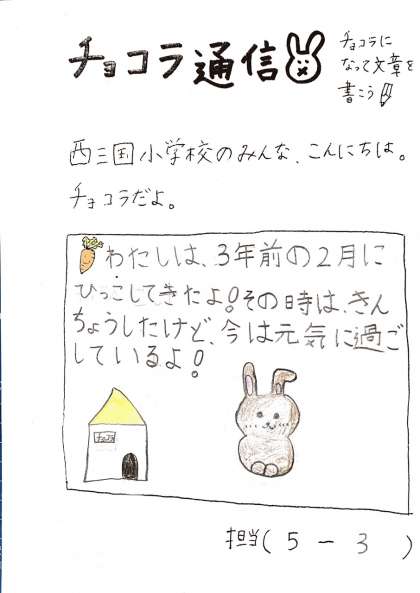 チョコラ通信
チョコラに
なって文章を
書こう
西三国小学校のみんな、こんにちは。
チョコラだよ。
わたしは、3年前の2月に
ひっこしてきたよ!その時は、きん
ちょうしたけど、今は元気に過ご
しているよ!
チョコラ
担当(5-3)